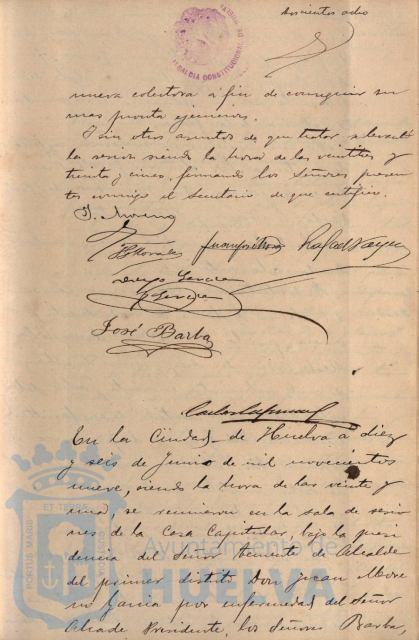 doscientos ocho
ALCALDIA CONSTITUCIONAL
nueva colectora a fin de conseguir su
mas pronta ejecucion.
Y sin otros asuntos de que tratar se levantó
la sesion siendo la hora de las veintitres y
treinta y cinco, firmando los Señores presen
tes conmigo el Secretario de que certifico.
J. Moreno
José Barba
En la Ciudad de Huelva a diez
y seis de Junio de mil novecientos
nueve, siendo la hora de las veinte y
una, se reunieron en la sala de sesio
nes de la Casa Capitular, bajo la presi
dencia del Señor Teniente de Alcalde
del primer distrito Don Juan More
no Garcia por enfermedad del Señor
Alcalde Presidente, los Señores Barba
PORTUS MARIS
ET TERRAE
Ayuntamiento de
HUELVA